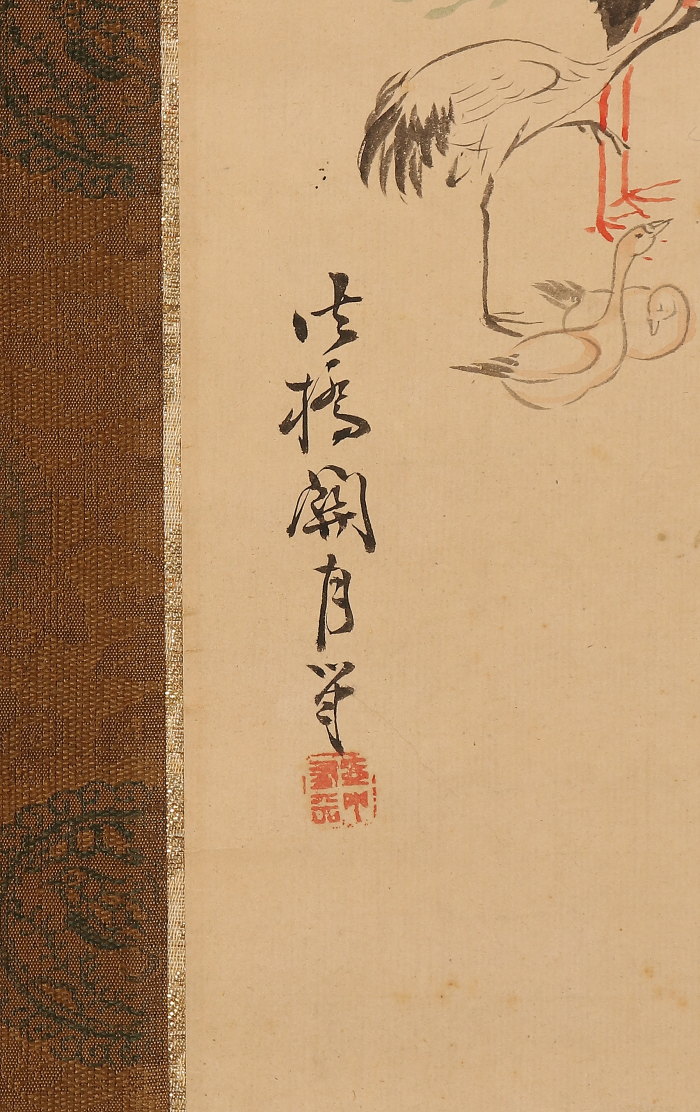 法橋關月筆